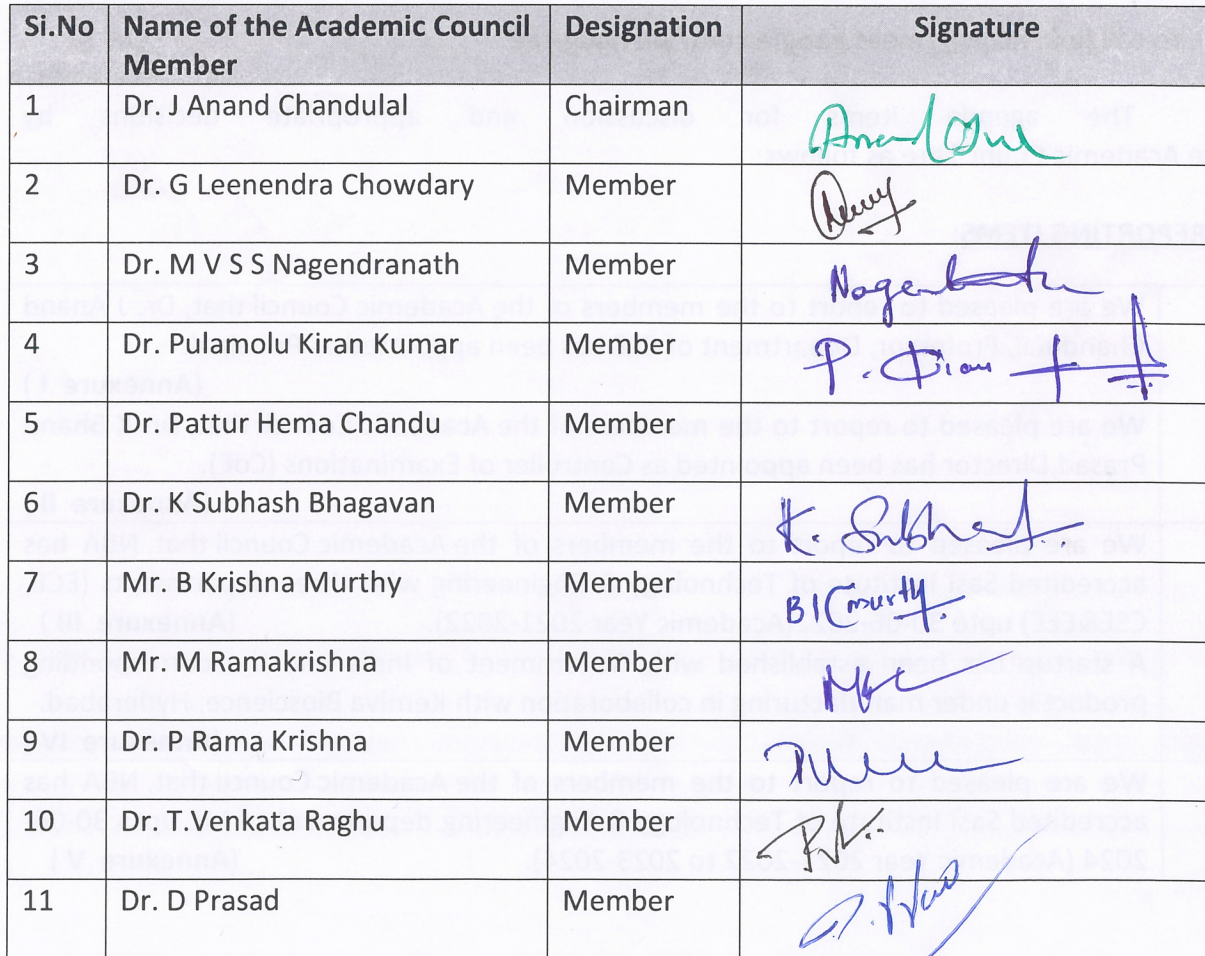 Sl.No Name of the Academic Council Designation Signature
Member
1 Dr. J Anand Chandulal Chairman
2 Dr. G Leenendra Chowdary Member
3 Dr. M V S S Nagendranath Member
4 Dr. Pulamolu Kiran Kumar Member P. Kiran
5 Dr. Pattur Hema Chandu Member
6 Dr. K Subhash Bhagavan Member K. Subhash
7 Mr. B Krishna Murthy Member BKmurthy
8 Mr. M Ramakrishna Member
9 Dr. P Rama Krishna Member
10 Dr. T.Venkata Raghu Member
11 Dr. D Prasad Member